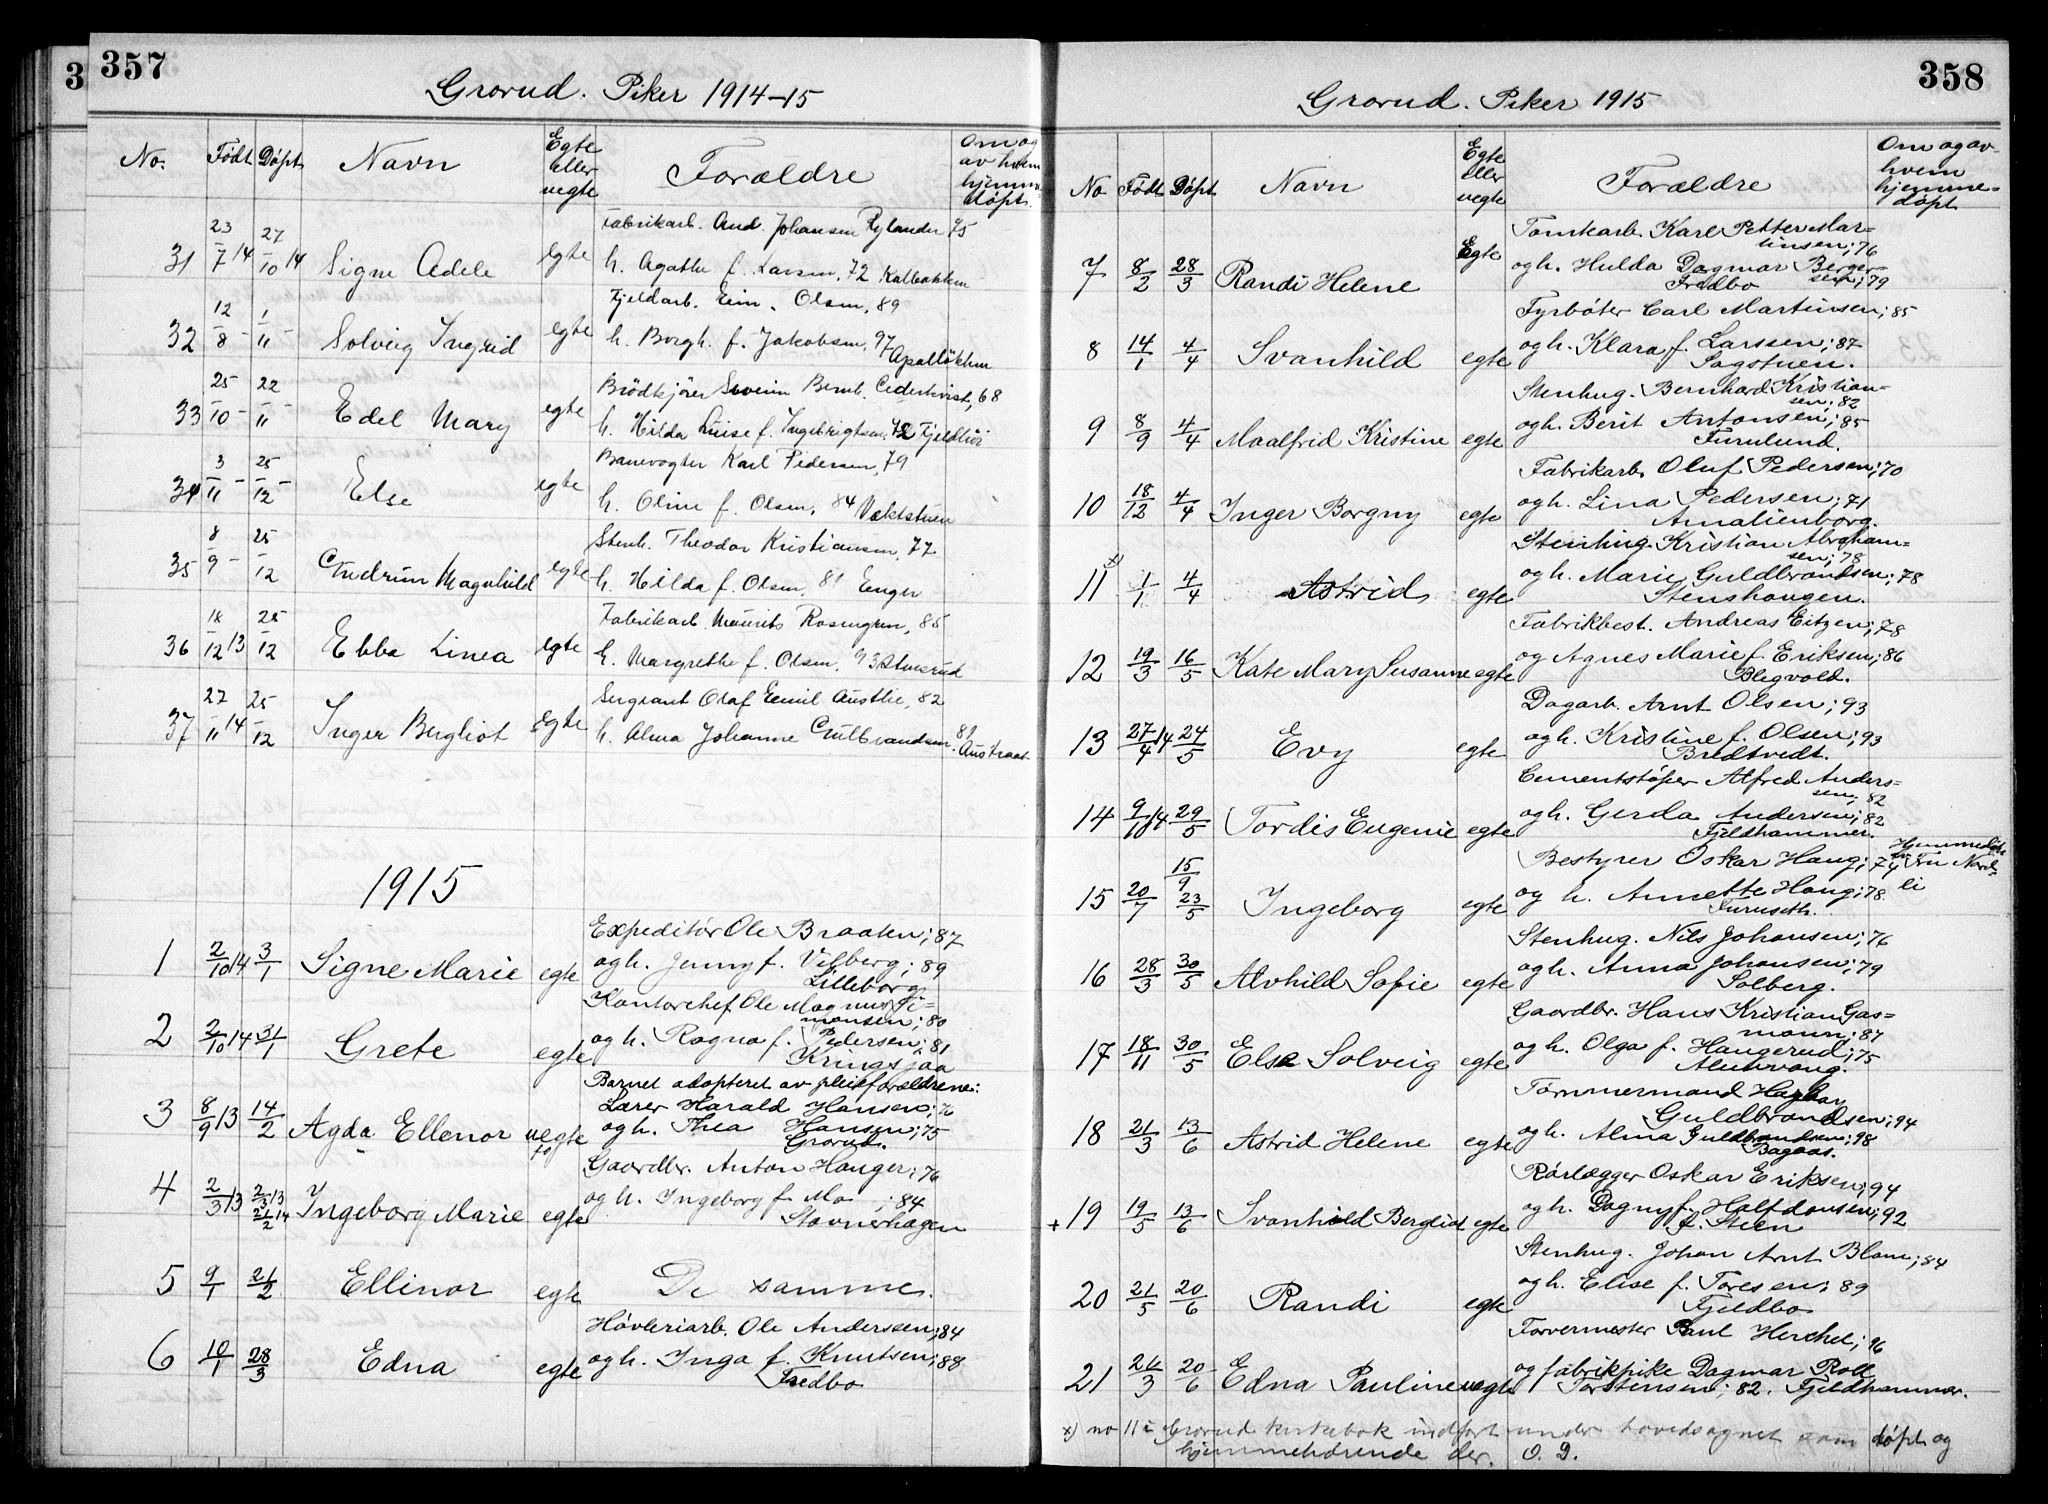 3
357
Grorud. Piker 1914-15
No. Født Døpt Navn Egte eller uegte Forældre Om og av hvem hjemmedøpt.
Fabrikarb. And. Johansen Rylander 75
31 23/7 14 27/10 14 Signe Adele egte h. Agathe f. Larsen, 72 Kalbakken
Fjeldarb. Ein. Olsen, 89
32 12/8 - 1/11 - Solveig Ingrid egte h. Borgh. f. Jakobsen, 97 Apalløkken
Brödkjörer Severin Bernh. Cederkvist, 68
33 25/10 - 22/11 - Edel Mary egte h. Hilda Luise f. Ingebrigtsen, 72
Banevogter Karl Pedersen, 79
34 3/11 - 25/12 - Else egte h. Oline f. Olsen, 84 Vaktstuen
Stenh. Theodor Kristiansen, 77
35 8/9 - 25/12 Gudrun Magnhild egte h. Hilda f. Olsen, 81 Enger
Fabrikarb. Maurits Rosengren, 85
36 18/12 13 25/12 Ebba Linea egte h. Margrethe f. Olsen, 93
Sergeant Olaf Emil Austlie, 82
37 27/11 14 25/12 Inger Bergliot egte h. Alma Johanne Gulbrandsen, 81 Austraat
1915
Expeditør Ole Braaten; 87
1 2/10 14 3/1 Signe Marie egte og h. Jenny f. Vilberg; 89
Lilleborg
Kontorchef Ole Magnus Si=
monsen; 80
2 2/10 14 31/1 Grete egte og h. Ragna f. Pedersen; 81
Kringsjaa
Barnet adopteret av pleieforældrene:
Lærer Harald Hansen; 76
3 8/9 13 14/2 Agda Ellenor uegte og h. Thea Hansen; 75
Grorud.
Gaardbr. Anton Hauger; 76
4 2/3 13 2/3 13 21/2 14 Ingeborg Marie egte og h. Ingeborg f. Mo ; 84
Stovnerhagen
5 9/1 21/2 Ellinor egte De samme.
Høvleriarb. Ole Anderssen; 84
6 10/1 28/3 Edna egte og h. Inga f. Knutsen; 88
Fredbo
358
Grorud. Piker 1915
No Født Døpt Navn Egte eller uegte Forældre Om og av hvem hjemme=døpt
Tomtearb. Karl Petter Mar=
tinsen; 76
7 8/2 28/3 Randi Helene Egte og h. Hulda Dagmar Berger=
sen; 79
Fredbo
Fyrbøter Carl Martinsen; 85
8 14/1 4/4 Svanhild egte og h. Klara f. Larssen; 87
Sagstuen.
Stenhug. Bernhard Kristian=
sen; 82
9 8/9 4/4 Maalfrid Kristine egte og h. Berit Antonsen; 85
Furulund.
Fabrikarb. Oluf Pedersen; 70
10 18/12 4/4 Inger Borgny egte og h. Lina Pedersen; 71
Amalienborg.
Stenhug. Kristian Abraham=
sen; 78
x) 11 1/1 4/4 Astrid egte og h. Marie Guldbrandsen; 78
Stenshaugen.
Fabrikbest. Andreas Eitzen; 78
12 19/3 16/5 Kate Mary Susanne egte og Agnes Marie f. Eriksen; 86
Blegvold.
Dagarb. Arnt Olsen; 93
13 27/4 14 24/5 Evy egte og h. Kristine f. Olsen; 93
Bredtvedt.
Cementstøper Alfred Anders=
sen; 82
14 9/10 14 29/5 Tordis Eugenie egte og h. Gerda Andersen; 82
Fjeldhammer.
Bestyrer Oskar Haug; 74 Hjemmedøbt av Fru Nord=li
15 20/7 15/9 23/5 Ingeborg egte og h. Annette Haug; 78.
Furuseth.
Stenhug. Nils Johansen; 76
16 28/3 30/5 Alvhild Sofie egte og h. Anna Johansen; 79
Solberg.
Gaardbr. Hans Kristian Gas=
mann; 87
17 18/11 30/5 Else Solveig egte og h. Olga f. Haugerud; 75
Alunvang.
Tømmermand Hagbar
Guldbrandsen; 94
18 21/3 13/6 Astrid Helene egte og h. Alma Guldbrandsen; 98
Bagaas.
Rørlægger Oskar Eriksen; 94
+ 19 19/5 13/6 Svanhild Bergliot egte og h. Dagny f. Halfdansen; 92
f. Steen
Stenhug. Johan Arnt Blom; 84
20 21/5 20/6 Randi egte og h. Elise f. Toresen; 89
Fjeldbo
Farvermester Paul Herchel; 96
21 24/3 20/6 Edna Pauline uegte og fabrikpike Dagmar Roll
Torstensen; 82. Fjeldhammer.
x) no 11 i Grorud kirkebok indført under hovedsognet som døpt og
hjemmehørende der. O. D.